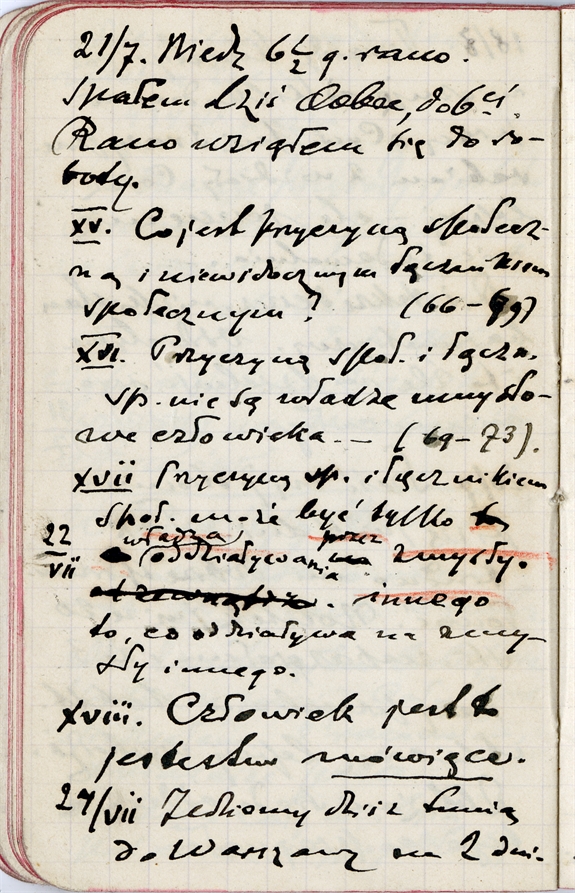 21/7. Niedz 6 1/2 g. rano.
Spałem dziś dobrze, do 6ej.
Rano wziąłem się do ro-
boty.
XV. Co jest przyczyną społecz-
ną i niewidocznym łącznikiem
społecznym? (66-69)
XVI. Przyczyną społ. i łączn.
sp. nie są władze umysło-
we człowieka. — (69-73).
XVII Przyczyną sp. i łącznikiem
społ. może być tylko to
22/VII władza oddziaływania przez na zmysły.
zewnątrz. innego
to, co oddziaływa na zmy-
sły innego.
XVIII. Człowiek jest to
jestestwo mówiące.
24/VII Jedziemy dziś z
do Warszawy na 2 dni.